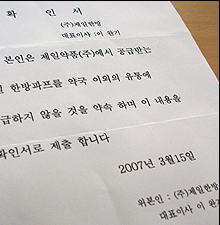 확 인 서
(주)제일한방
대표이사 : 이 완기
본인은 제일약품(주)에서 공급받는
한방파프를 약국 이외의 유통에
급하지 않을 것을 약속 하며 이 내용을
확인서로 제출 합니다
2007년 3월15일
위본인 : (주)제일한방
대표이사 이 완기